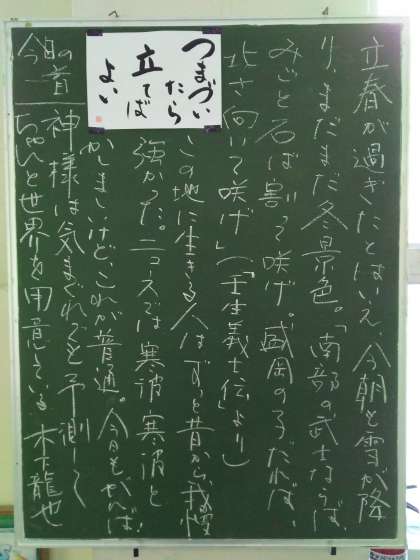 立春が過ぎたとはいえ、今朝も雪が降
り、まだまだ冬景色。「南部の武士ならば、
みごと石ば割って咲げ。盛岡の子だれば、
北さ向いて咲げ」(「壬生義士伝」より)
つまづい
たら
立てば
よい
この地に生きる人はずっと昔から、我慢
強かった。ニュースでは寒波寒波と
かしましいけど、これが普通。今日もがんば
今日の一首
神様は気まぐれでも予測して
ちゃんと世界を用意している 木下龍也